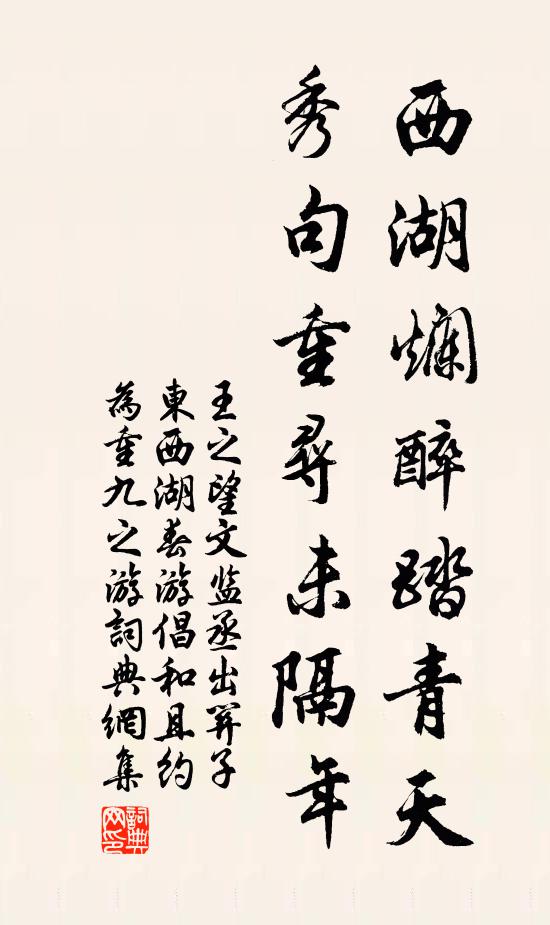 西湖爛醉踏青天
秀句重尋未隔年
王之望文监丞出羿子
東西湖春游倡和且約
為重九之游詞典網集
詞典网印